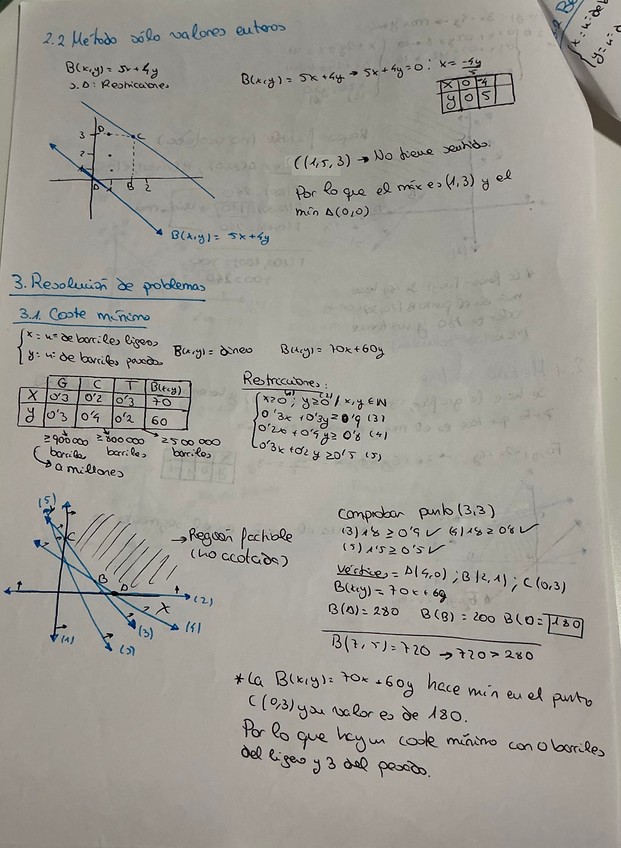 2.2 Método sólo valores enteros
B(x,y) = 5x+4y
s.a: Restricciones
B(x,y) = 5x+4y → 5x+4y=0 ; x = -4y/5
X 0 -4
Y 0 5
3 D C
2
A 1 B 2
B(x,y) = 5x+4y
C(1,5, 3) → No tiene sentido.
Por lo que el máx es (1,3) y el
min A(0,0)
3. Resolución de problemas
3.1. Coste mínimo
x = nº de barriles ligeros
y = nº de barriles pesados
B(x,y) = dinero B(x,y) = 70x+60y
G C T B(x,y)
X 0'3 0'2 0'3 70
Y 0'3 0'4 0'2 60
≥900000 ≥800000 ≥500 000
barriles barriles barriles
a millones
Restricciones:
x≥0 (1); y≥0 (2) / x,y ∈ N
0'3x + 0'3y ≥ 0'9 (3)
0'2x + 0'4y ≥ 0'8 (4)
0'3x + 0'2y ≥ 0'5 (5)
(5)
C
→ Región factible
(no acotada)
B A X (2)
(1) (3) (4)
(5)
Comprobar punto (3,3)
(3) 1'8 ≥ 0'9 ✓ (4) 1'8 ≥ 0'8 ✓
(5) 1'5 ≥ 0'5 ✓
Vértices = A(4,0) ; B(2,1) ; C(0,3)
B(x,y) = 70x + 60y
B(A) = 280 B(B) = 200 B(C) = 180
B(7,5) = 720 → 720 > 280
* La B(x,y) = 70x + 60y hace min en el punto
C(0,3) y su valor es de 180.
Por lo que hay un coste mínimo con 0 barriles
del ligero y 3 del pesado.